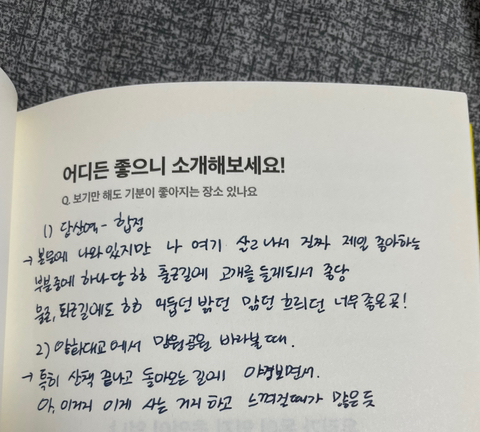 어디든 좋으니 소개해보세요!
Q. 보기만 해도 기분이 좋아지는 장소 있나요
1) 당산역 - 합정
→ 본문에 나와있지만 나 여기 살고나서 진짜 제일 좋아하는
부분중에 하나당 ㅎㅎ 출근길에 고개를 들게되서 좋당
물론, 퇴근길에도 ㅎㅎ 어둡던 밝던 맑던 흐리던 너무좋은곳!
2) 양화대교에서 망원공원 바라볼때.
→ 특히 산책 끝나고 돌아오는 길에 야경보면서.
아, 이거지 이게 사는 거지 하고 느껴질때가 많은듯